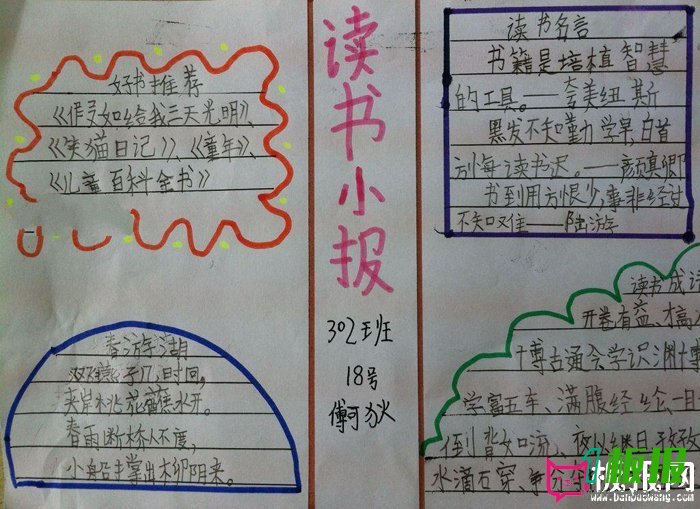 好书推荐
《假如给我三天光明》、
《笑猫日记》、《童年》、
《儿童百科全书》
读书小报
302班
18号
读书名言
书籍是培植智慧
的工具。——夸美纽斯
黑发不知勤学早,白首
方悔读书迟。——颜真卿
书到用方恨少,事非经过
不知难——陆游
春游湖
双燕子几时回,
夹岸桃花蘸水开。
春雨断桥人不度,
小船撑出柳阴来。
读书成
开卷有益、才高
博古通今学识渊博
学富五车、满腹经纶、一目
倒背如流、夜以继日
水滴石穿、争分
www.banbaowang.com